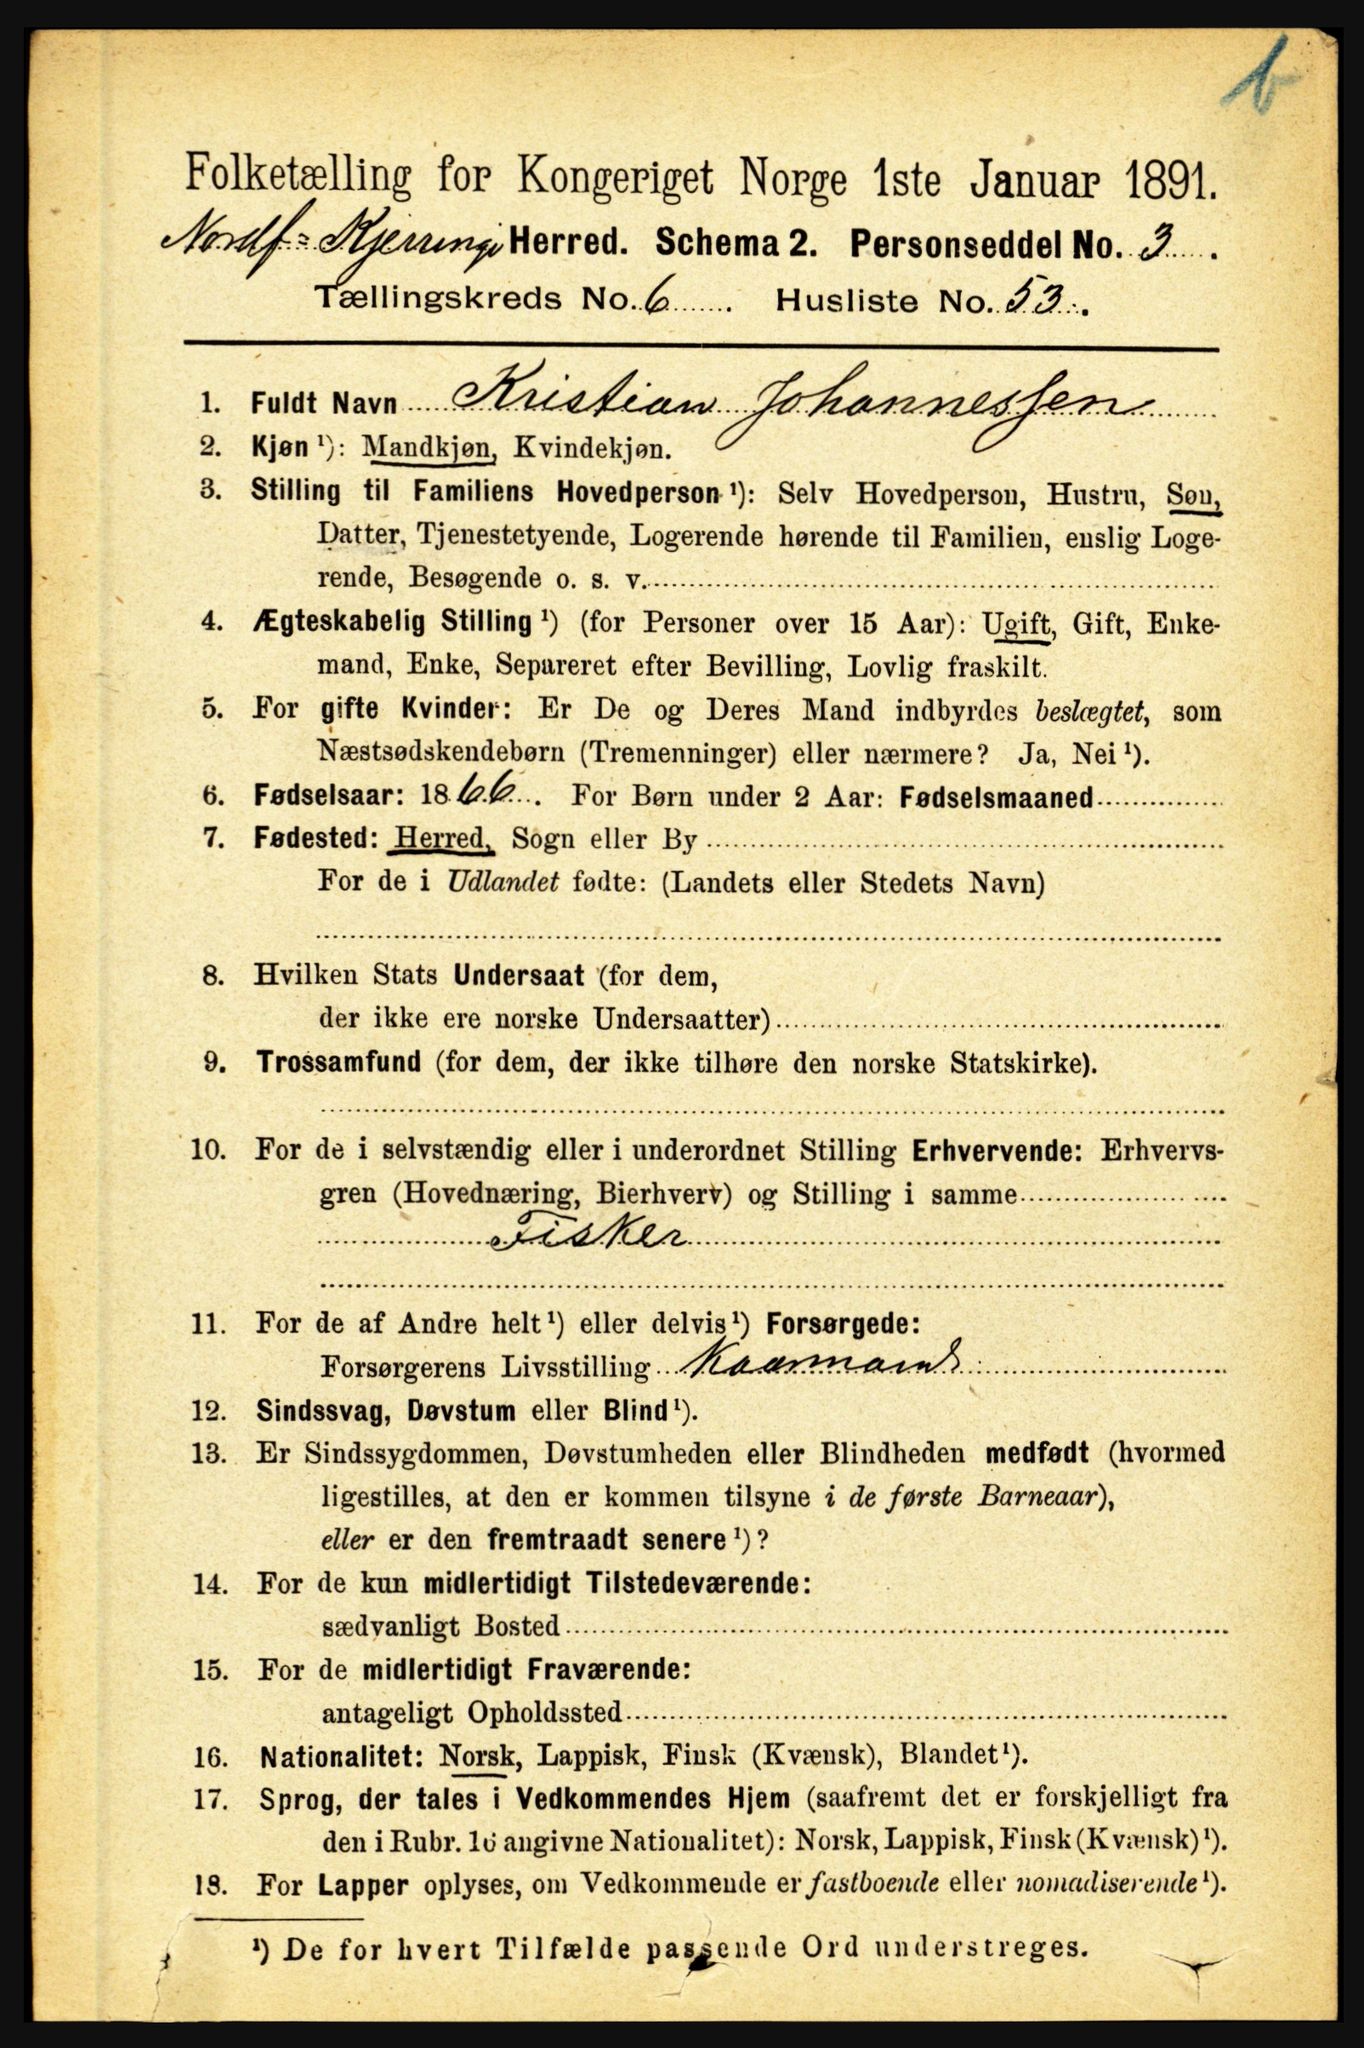 b
Folketælling for Kongeriget Norge 1ste Januar 1891.
Nordf=Kjerringø Herred. Schema 2. Personseddel No. 3.
Tællingskreds No. 6. Husliste No. 53.
1. Fuldt Navn Kristian Johannessen
2. Kjøn ¹): Mandkjøn, Kvindekjøn.
3. Stilling til Familiens Hovedperson ¹): Selv Hovedperson, Hustru, Søn,
Datter, Tjenestetyende, Logerende hørende til Familien, enslig Loge-
rende, Besøgende o. s. v.
4. Ægteskabelig Stilling ¹) (for Personer over 15 Aar): Ugift, Gift, Enke-
mand, Enke, Separeret efter Bevilling, Lovlig fraskilt.
5. For gifte Kvinder: Er De og Deres Mand indbyrdes beslægtet, som
Næstsødskendebørn (Tremenninger) eller nærmere? Ja, Nei ¹).
6. Fødselsaar: 1866. For Børn under 2 Aar: Fødselsmaaned
7. Fødested: Herred, Sogn eller By
For de i Udlandet fødte: (Landets eller Stedets Navn)
8. Hvilken Stats Undersaat (for dem,
der ikke ere norske Undersaatter)
9. Trossamfund (for dem, der ikke tilhøre den norske Statskirke).
10. For de i selvstændig eller i underordnet Stilling Erhvervende: Erhvervs-
gren (Hovednæring, Bierhverv) og Stilling i samme
Fisker
11. For de af Andre helt ¹) eller delvis ¹) Forsørgede:
Forsørgerens Livsstilling Kaarmand
12. Sindssvag, Døvstum eller Blind ¹).
13. Er Sindssygdommen, Døvstumheden eller Blindheden medfødt (hvormed
ligestilles, at den er kommen tilsyne i de første Barneaar),
eller er den fremtraadt senere ¹)?
14. For de kun midlertidigt Tilstedeværende:
sædvanligt Bosted
15. For de midlertidigt Fraværende:
antageligt Opholdssted
16. Nationalitet: Norsk, Lappisk, Finsk (Kvænsk), Blandet ¹).
17. Sprog, der tales i Vedkommendes Hjem (saafremt det er forskjelligt fra
den i Rubr. 16 angivne Nationalitet): Norsk, Lappisk, Finsk (Kvænsk) ¹).
18. For Lapper oplyses, om Vedkommende er fastboende eller nomadiserende ¹).
¹) De for hvert Tilfælde passende Ord understreges.